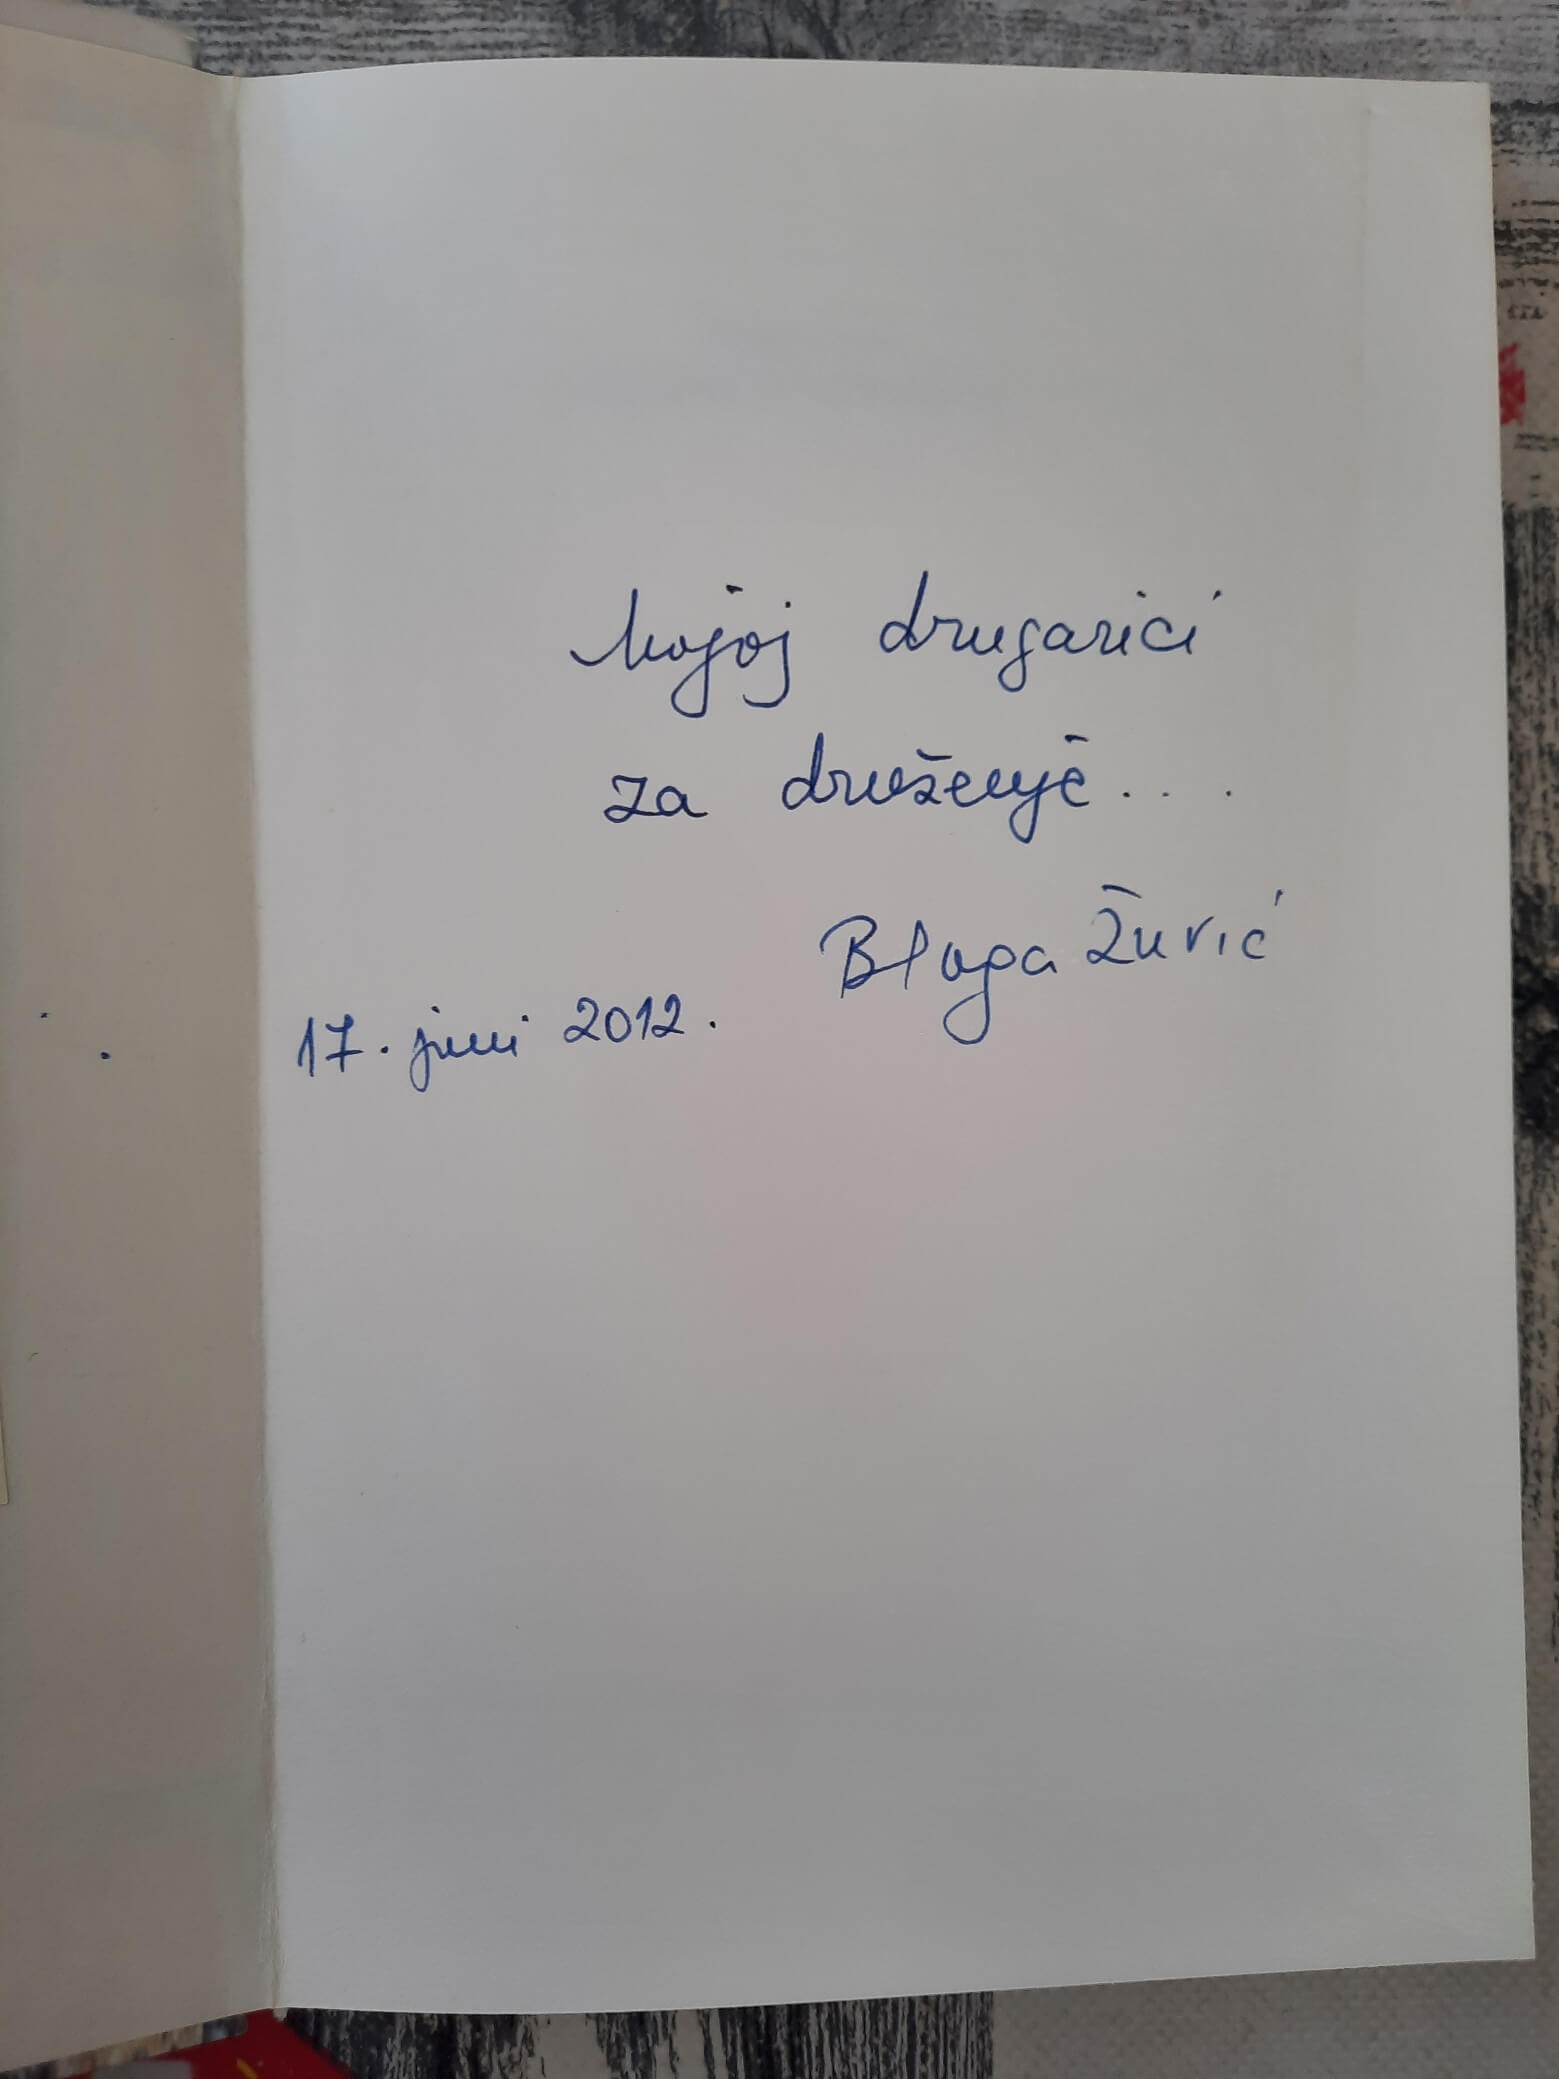 Mojoj drugarici
za druženje....
Blaga Žurić
17. juni 2012.